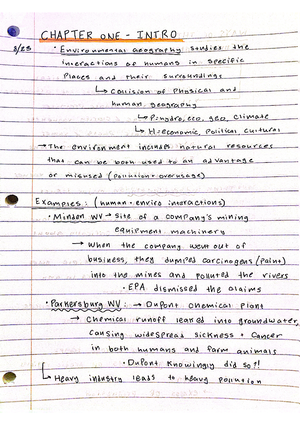 CHAPTER ONE - INTRO
8/23
• Environmental Geography studies the
interactions of humans in specific
places and their surroundings
↳ Collision of Physical and
human geography
↳ P=hydro, eco, geo, climate
↳ H=economic, political, cultural
→ The environment includes natural resources
that can be both used to an advantage
or misused (pollution + overusage)
Examples: (human-enviro interactions)
• Minden WV → Site of a company's mining
equipment machinery
→ When the company went out of
business, they dumped carcinogens (paint)
into the mines and polluted the rivers
• EPA dismissed the claims
• Parkersburg WV: → DuPont chemical plant
→ Chemical runoff leaked into groundwater,
causing widespread sickness + cancer
in both humans and farm animals
• DuPont knowingly did so?!
↳ Heavy industry leads to heavy pollution